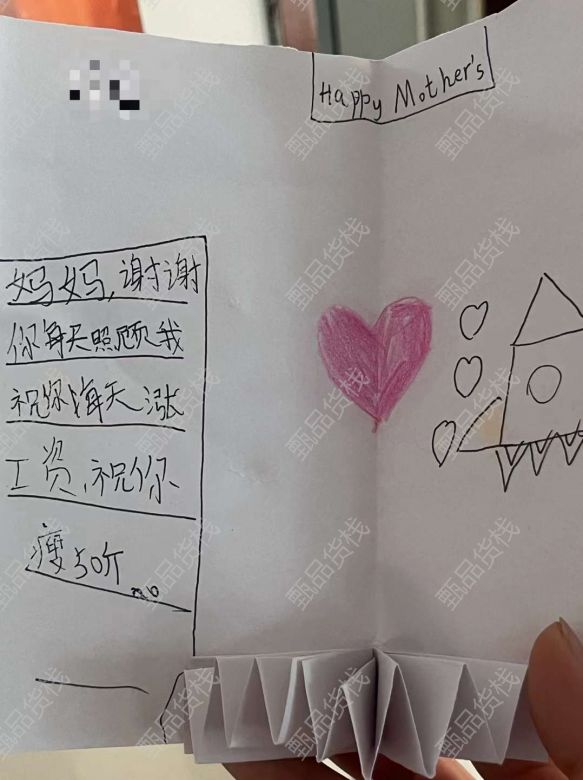 Happy Mother's
妈妈,谢谢
你每天照顾我
祝你每天涨
工资,祝你
瘦50斤